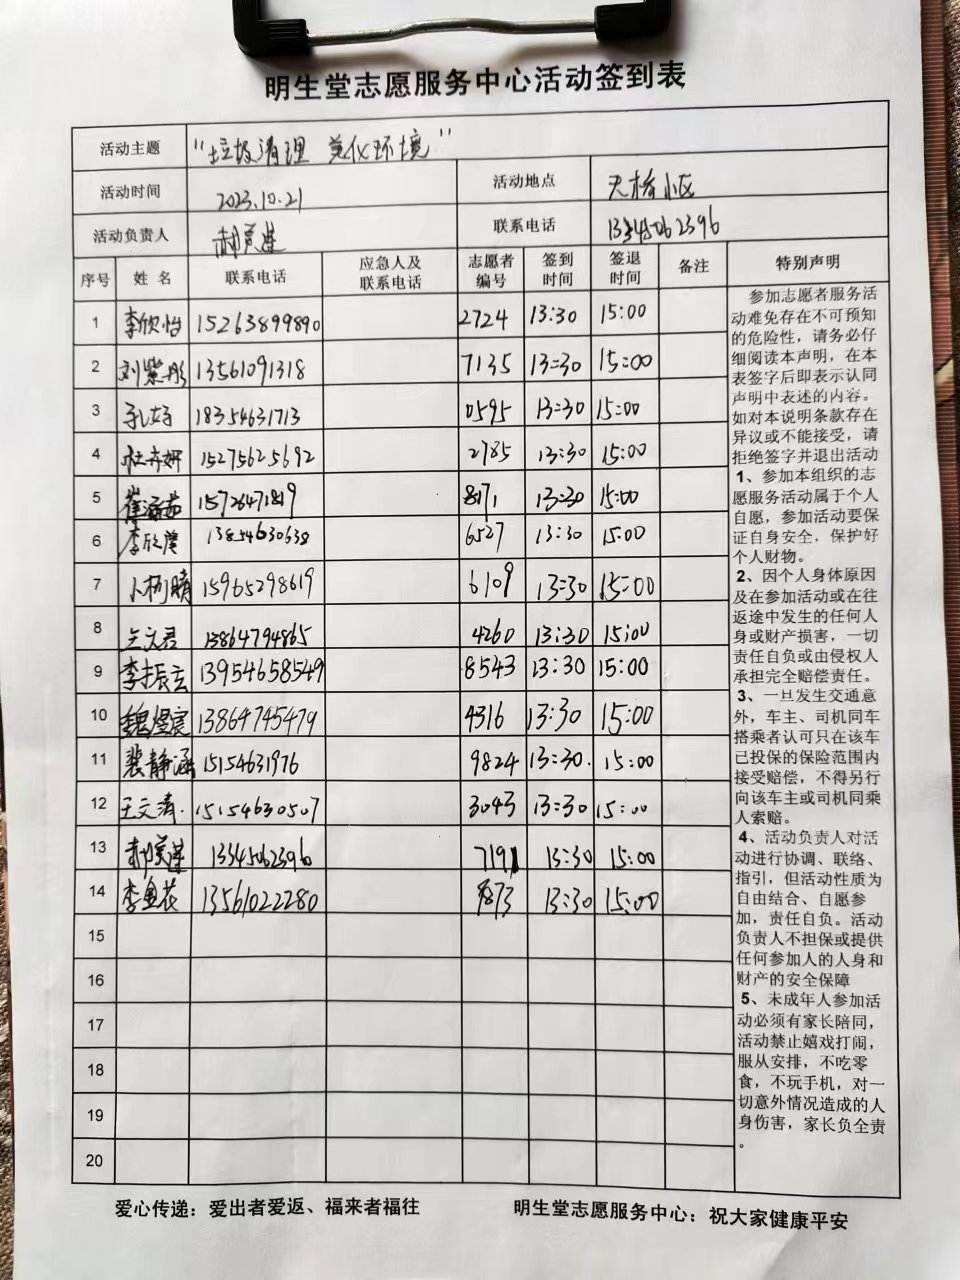 明生堂志愿服务中心活动签到表
活动主题 "垃圾清理 美化环境"
活动时间 2023.10.21 活动地点 小区
活动负责人 联系电话 13345062396
序号 姓名 联系电话 应急人及联系电话 志愿者编号 签到时间 签退时间 备注 特别声明
1 李欣怡 15263899890 2724 13:30 15:00
2 刘紫彤 13561091318 7135 13:30 15:00
3 18354631713 0595 13:30 15:00
4 杜卉妍 15275625692 2785 13:30 15:00
5 15726471819 8171 13:30 15:00
6 李欣滢 13854630638 6527 13:30 15:00
7 15965298619 6109 13:30 15:00
8 兰文君 13864794865 4260 13:30 15:00
9 李振云 13954658549 8543 13:30 15:00
10 魏煜宸 13864745479 4316 13:30 15:00
11 裴静涵 15154631976 9824 13:30. 15:00
12 王文清. 15154630507 3043 13:30 15:00
13 13345062396 7191 13:30 15:00
14 13561022280 9873 13:30 15:00
15
16
17
18
19
20
参加志愿者服务活
动难免存在不可预知
的危险性，请务必仔
细阅读本声明，在本
表签字后即表示认同
声明中表述的内容。
如对本说明条款存在
异议或不能接受，请
拒绝签字并退出活动
1、参加本组织的志
愿服务活动属于个人
自愿，参加活动要保
证自身安全，保护好
个人财物。
2、因个人身体原因
及在参加活动或在往
返途中发生的任何人
身或财产损害，一切
责任自负或由侵权人
承担完全赔偿责任。
3、一旦发生交通意
外，车主、司机同车
搭乘者认可只在该车
已投保的保险范围内
接受赔偿，不得另行
向该车主或司机同乘
人索赔。
4、活动负责人对活
动进行协调、联络、
指引，但活动性质为
自由结合、自愿参
加，责任自负。活动
负责人不担保或提供
任何参加人的人身和
财产的安全保障
5、未成年人参加活
动必须有家长陪同，
活动禁止嬉戏打闹，
服从安排，不吃零
食，不玩手机，对一
切意外情况造成的人
身伤害，家长负全责
。
爱心传递：爱出者爱返、福来者福往 明生堂志愿服务中心：祝大家健康平安